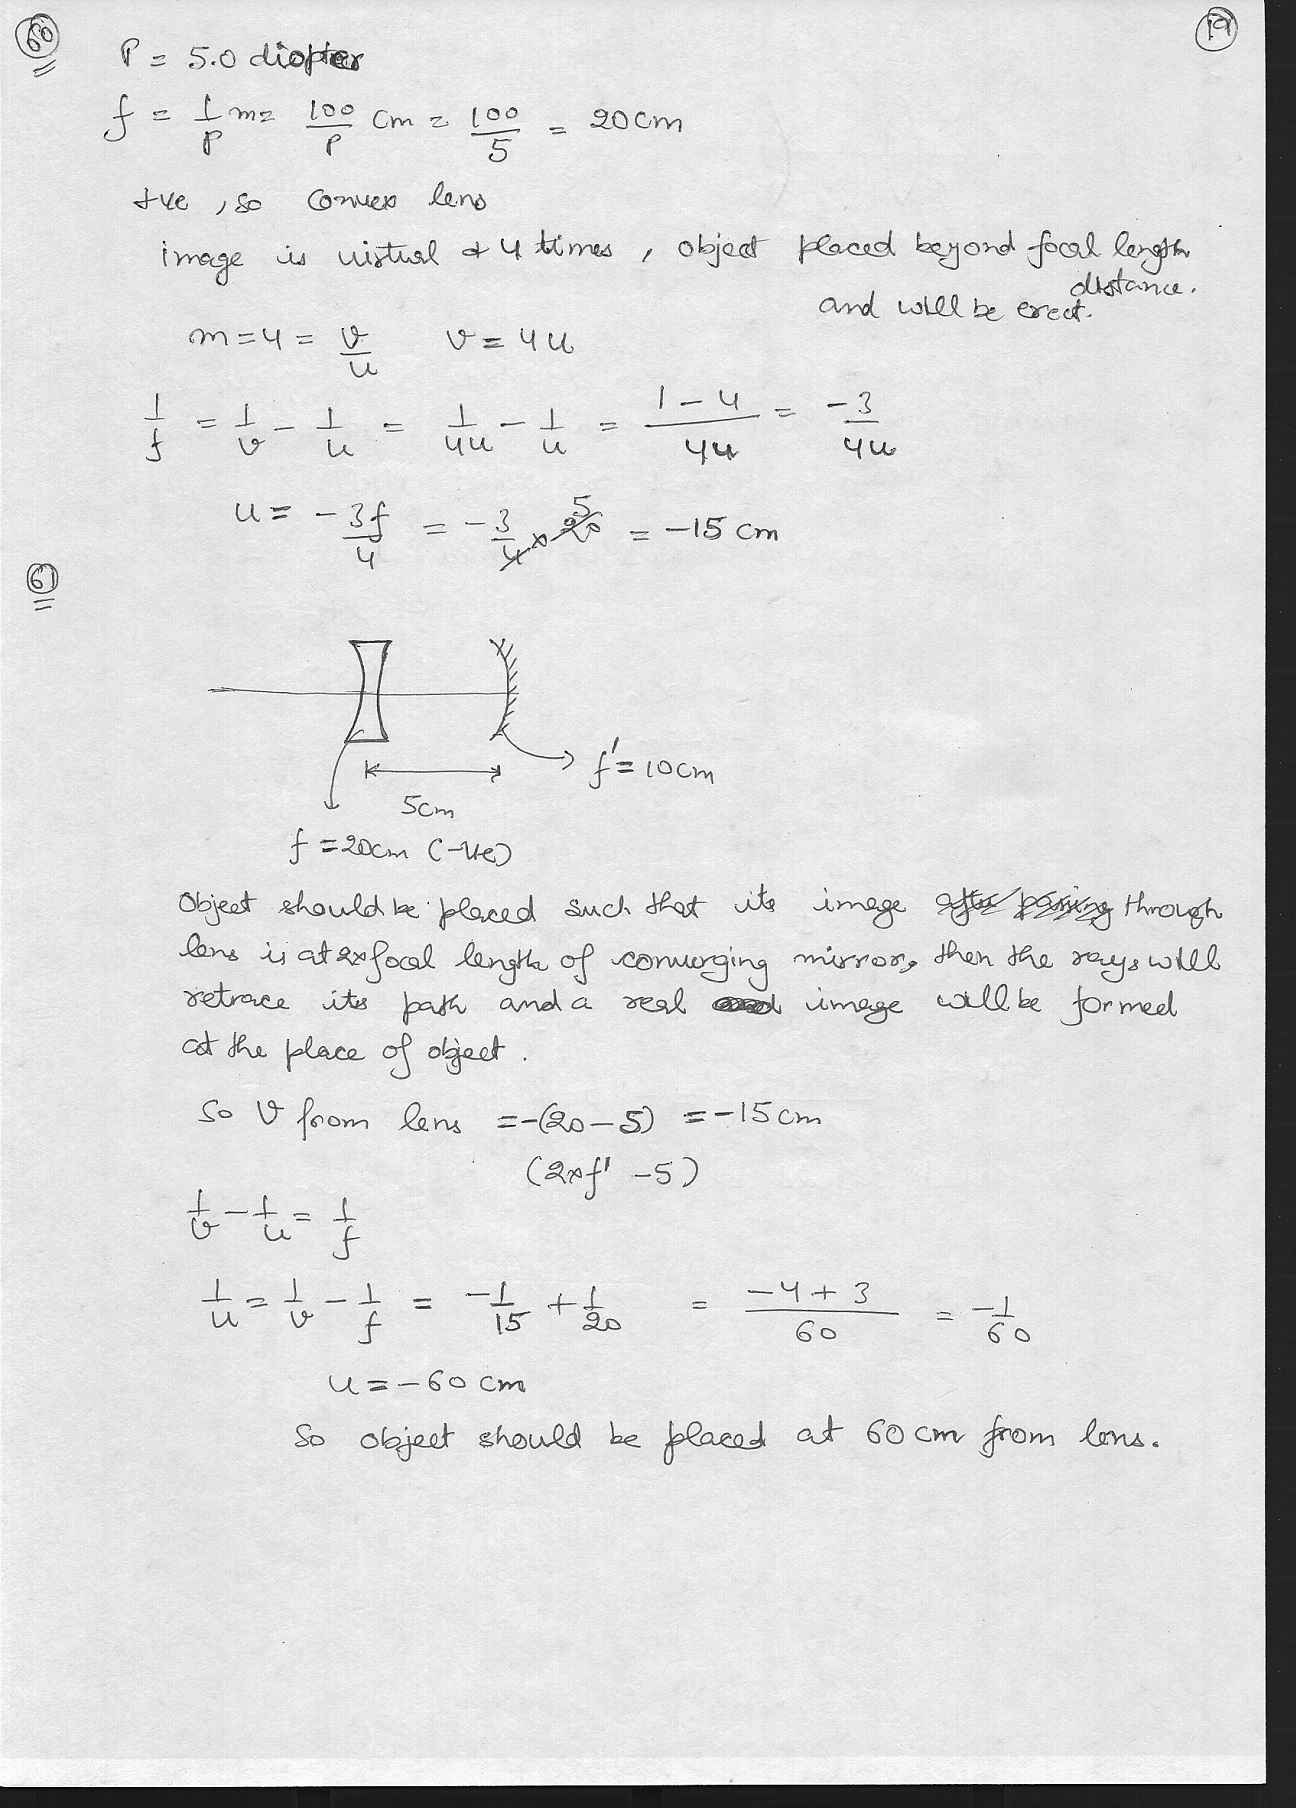 60
19
P = 5.0 diopter
f = 1/P m = 100/P cm = 100/5 = 20cm
+ve, so convex lens
image is virtual & 4 times, object placed beyond focal length
distance.
and will be erect.
m = 4 = v/u v = 4u
1/f = 1/v - 1/u = 1/4u - 1/u = 1-4/4u = -3/4u
u = -3f/4 = -3/4 × 20 5 = -15 cm
61
f' = 10cm
5cm
f = 20cm (-ve)
Object should be placed such that its image after passing through
lens is at 2xfocal length of converging mirror, then the rays will
retrace its path and a real image will be formed
at the place of object.
So v from lens = -(20-5) = -15cm
(2xf' - 5)
1/v - 1/u = 1/f
1/u = 1/v - 1/f = -1/15 + 1/20 = -4+3/60 = -1/60
u = -60 cm
So object should be placed at 60 cm from lens.